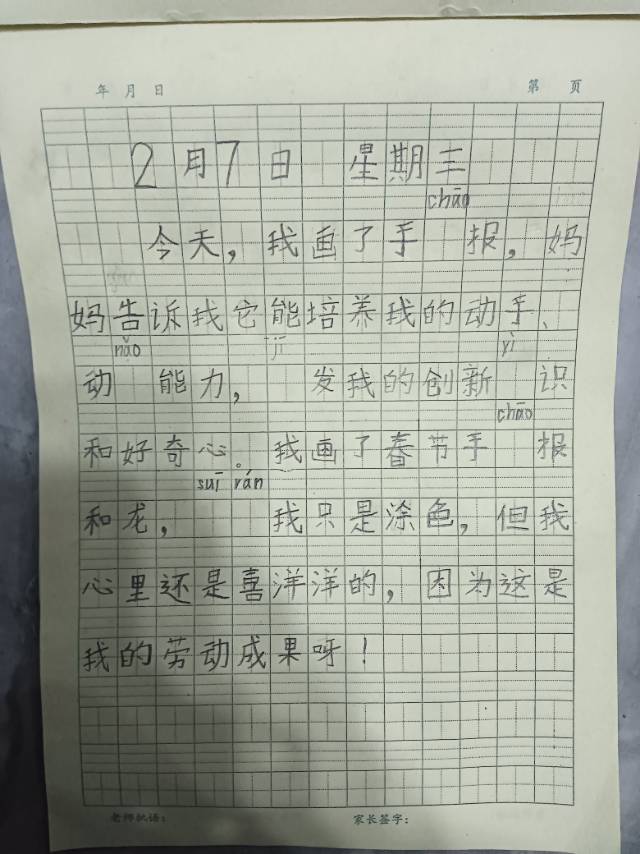 年 月 日 第 页
2月7日 星期三
chāo
今天，我画了手 报，妈
妈告诉我它能培养我的动手、
nǎo jī yì
动 能力， 发我的创新 识
chāo
和好奇心。我画了春节手 报
suī rán
和龙， 我只是涂色，但我
心里还是喜洋洋的，因为这是
我的劳动成果呀！
老师批语： 家长签字：